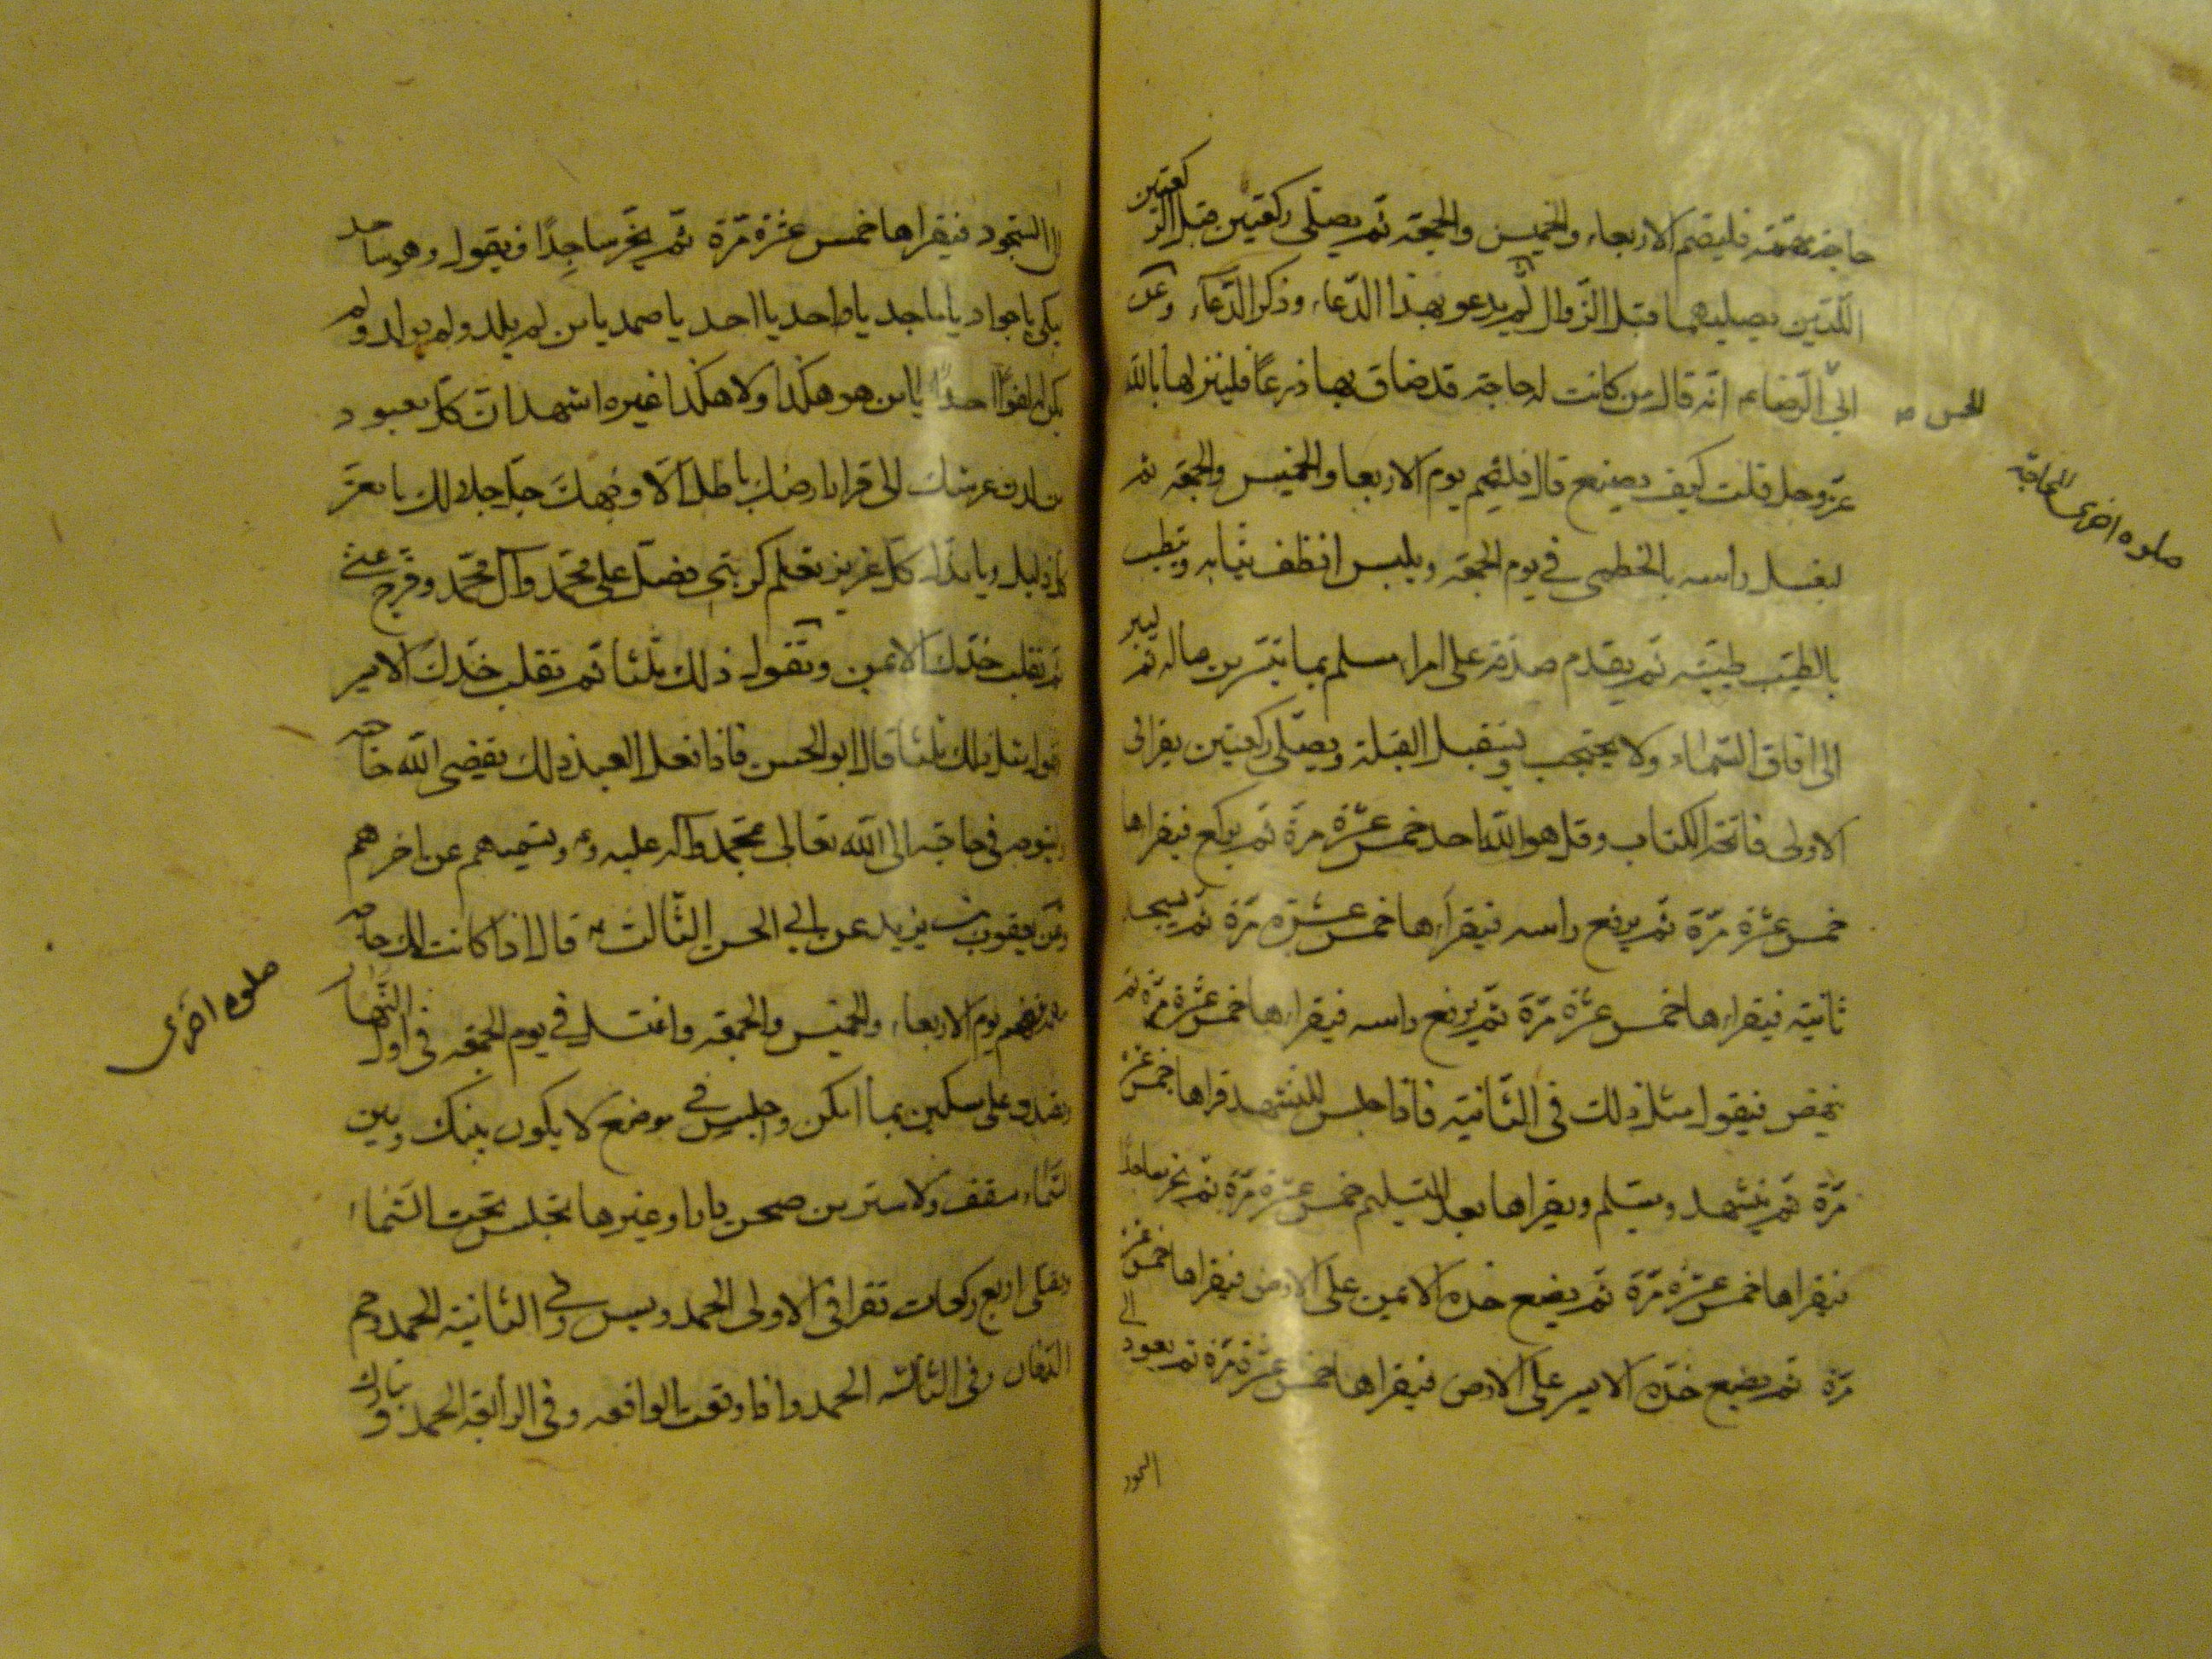 حاجة مهمّة فليصم الاربعاء والخميس والجمعة ثم يصلى ركعتين قبل الركعتين
اللتين يصليهما قبل الزّوال ثم يدعو بهذا الدّعاء وذكر الدّعاء وعن
ابى الرّضا انّه قال من كانت له حاجة قد ضاق بها ذرعًا فلينزلها بالله
للحسن
صلوه اخرى للحاجة
عزّ وجل قلت كيف يصنع قال فليصم يوم الاربعا والخميس والجمعة ثم
ليغسل راسه بالخطمى فى يوم الجمعة ويلبس انظف ثيابه ويتطيب
بالطيّب طيبّة ثم يقدم صدقة على امراء مسلم بما تيسّر من ماله ثم ليبر
الى افاق السّماء ولا يحتجب ويستقبل القبلة ويصلّى ركعتين يقرا فى
الاولى فاتحة الكتاب وقل هو الله احد خمس عشرة مرة ثم يركع فيقراها
خمس عشرة مرّة ثم يرفع راسه فيقراءها خمس عشرة مرّة ثم يسجد
ثانية فيقراءها خمس عشرة مرّة ثم يرفع راسه فيقراءها خمس عشرة مرّة ثم
ينهض فيقول مثل ذلك فى الثّانية فاذا جلس للتشهد قراها خمس عشرة
مرّة ثم يتشهد ويسلم ويقراها بعد التسليم خمس عشرة مرّة ثم يخر ساجدًا
فيقراها خمس عشرة مرّة ثم يضع خده الايمن على الارض فيقراها خمس عشرة
مرّة ثم يضع خدّه الايسر على الارض فيقراها خمس عشرة مرّة ثم يعود الى
السجود
الى السّجود فيقراها خمس عشرة مرّة ثم يخرّ ساجدًا فيقول وهو ساجد
يبكى يا جواد يا ماجد يا واحد يا احد يا صمد يا من لم يلد ولم يولد ولم
يكن له كفوًا احدًا يا من هو هكذا ولا هكذا غيره اشهد ان كل معبود
من لدن عرشك الى قرار ارضك باطل الّا وجهك جلّ جلالك يا معزّ
كل ذليل ويا مذل كل عزيز تعلم كربتى فصلّ على محمّد وآل محمّد وفرّج عنّى
ثم تقلب خدّك الايمن وتقول ذلك ثلثا ثم تقلب خدّك الايسر
وتقول مثل ذلك ثلثا قال ابو الحسن فاذا فعل العبد ذلك يقضى الله حاجته
وليتوجه فى حاجته الى الله تعالى بمحمّد وآله عليه وعليهم ويسمّيهم عن اخرهم
وعن يعقوب بن يزيد عن ابى الحسن الثّالث قال اذا كانت لك حاجة
فصم يوم الاربعاء والخميس والجمعة واغتسل فى يوم الجمعة فى اول النّهار
صلوه اخرى
وتصدق على مسكين بما امكن واجلس فى موضع لا يكون بينك وبين
السّماء سقف ولا ستر من صحن دار او غيرها تجلس تحت السّماء
وتصلى اربع ركعات تقرا فى الاولى الحمد ويس وفى الثانية الحمد وحم
الدّخان وفى الثالثه الحمد واذا وقعت الواقعه وفى الرّابعة الحمد وتبارك